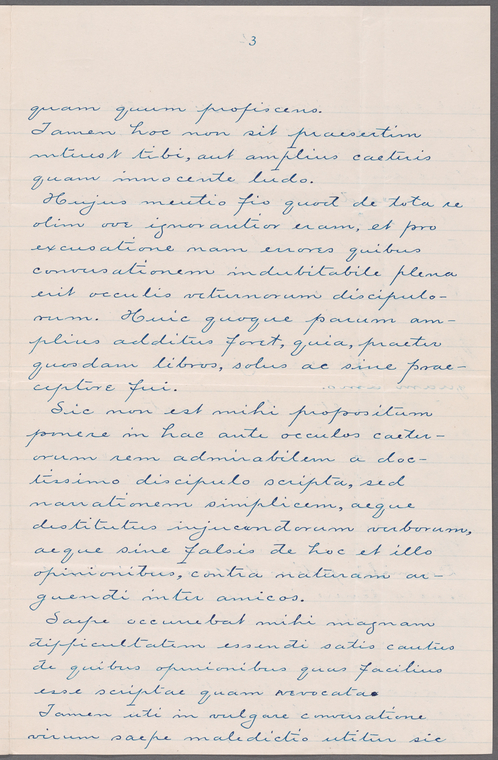 3
quam quum profiscens.
Tamen hoc non sit praesertim
interest tibi, aut amplius caeteris
quam innocente ludo.
Hujus mentio fio quod de tota re
olim ove ignorantior eram, et pro
excusatione nam errores quibus
conversationem indubitabile plena
erit occulis veturnorum discipulo-
rum. Huic quoque parum am-
plius additus foret, quia, praeter
quosdam libros, solus ac sine prae-
ceptore fui.
Sic non est mihi propositum
ponere in hac ante occulos caeter-
orum rem admirabilem a doc-
tissimo discipulo scripta, sed
narrationem simplicem, aeque
destitutus injucundorum verborum,
aeque sine falsis de hoc et illo
opinionibus, contra naturam ar-
guendi inter amicos.
Saepe occurrebat mihi magnam
difficultatem essendi satis cautus
de quibus opinionibus quas facilius
esse scriptae quam revocatae
Tamen uti in vulgare conversatione
virum saepe maledictio utitur sic